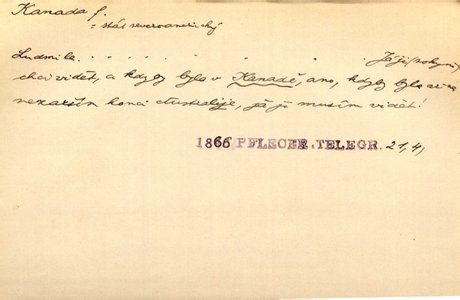 Kanada f.
= stát severoamerický
Ludmila . . . . . . . . Já ji (pokyny)
chci viděti, a kdyby byla v Kanadě, ano, kdyby byla až na
nezazším konci Australije, já ji musím viděti!
1866 PFLEGER. TELEGR. 21,4,